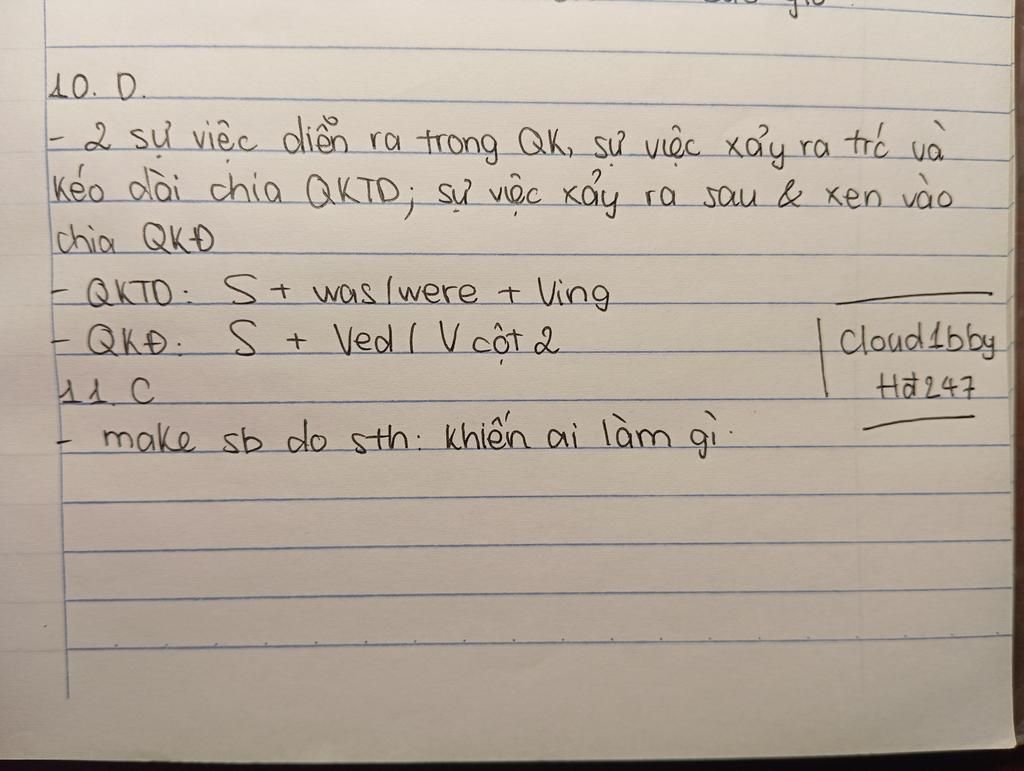 10. D.
- 2 sự việc diễn ra trong QK, sự việc xảy ra trc và
kéo dài chia QKTD; sự việc xảy ra sau & xen vào
chia QKĐ
- QKTD: S + was/were + Ving
- QKĐ: S + Ved / V cột 2
Cloud1bby
Hđ247
11. C
- make sb do sth: khiến ai làm gì.